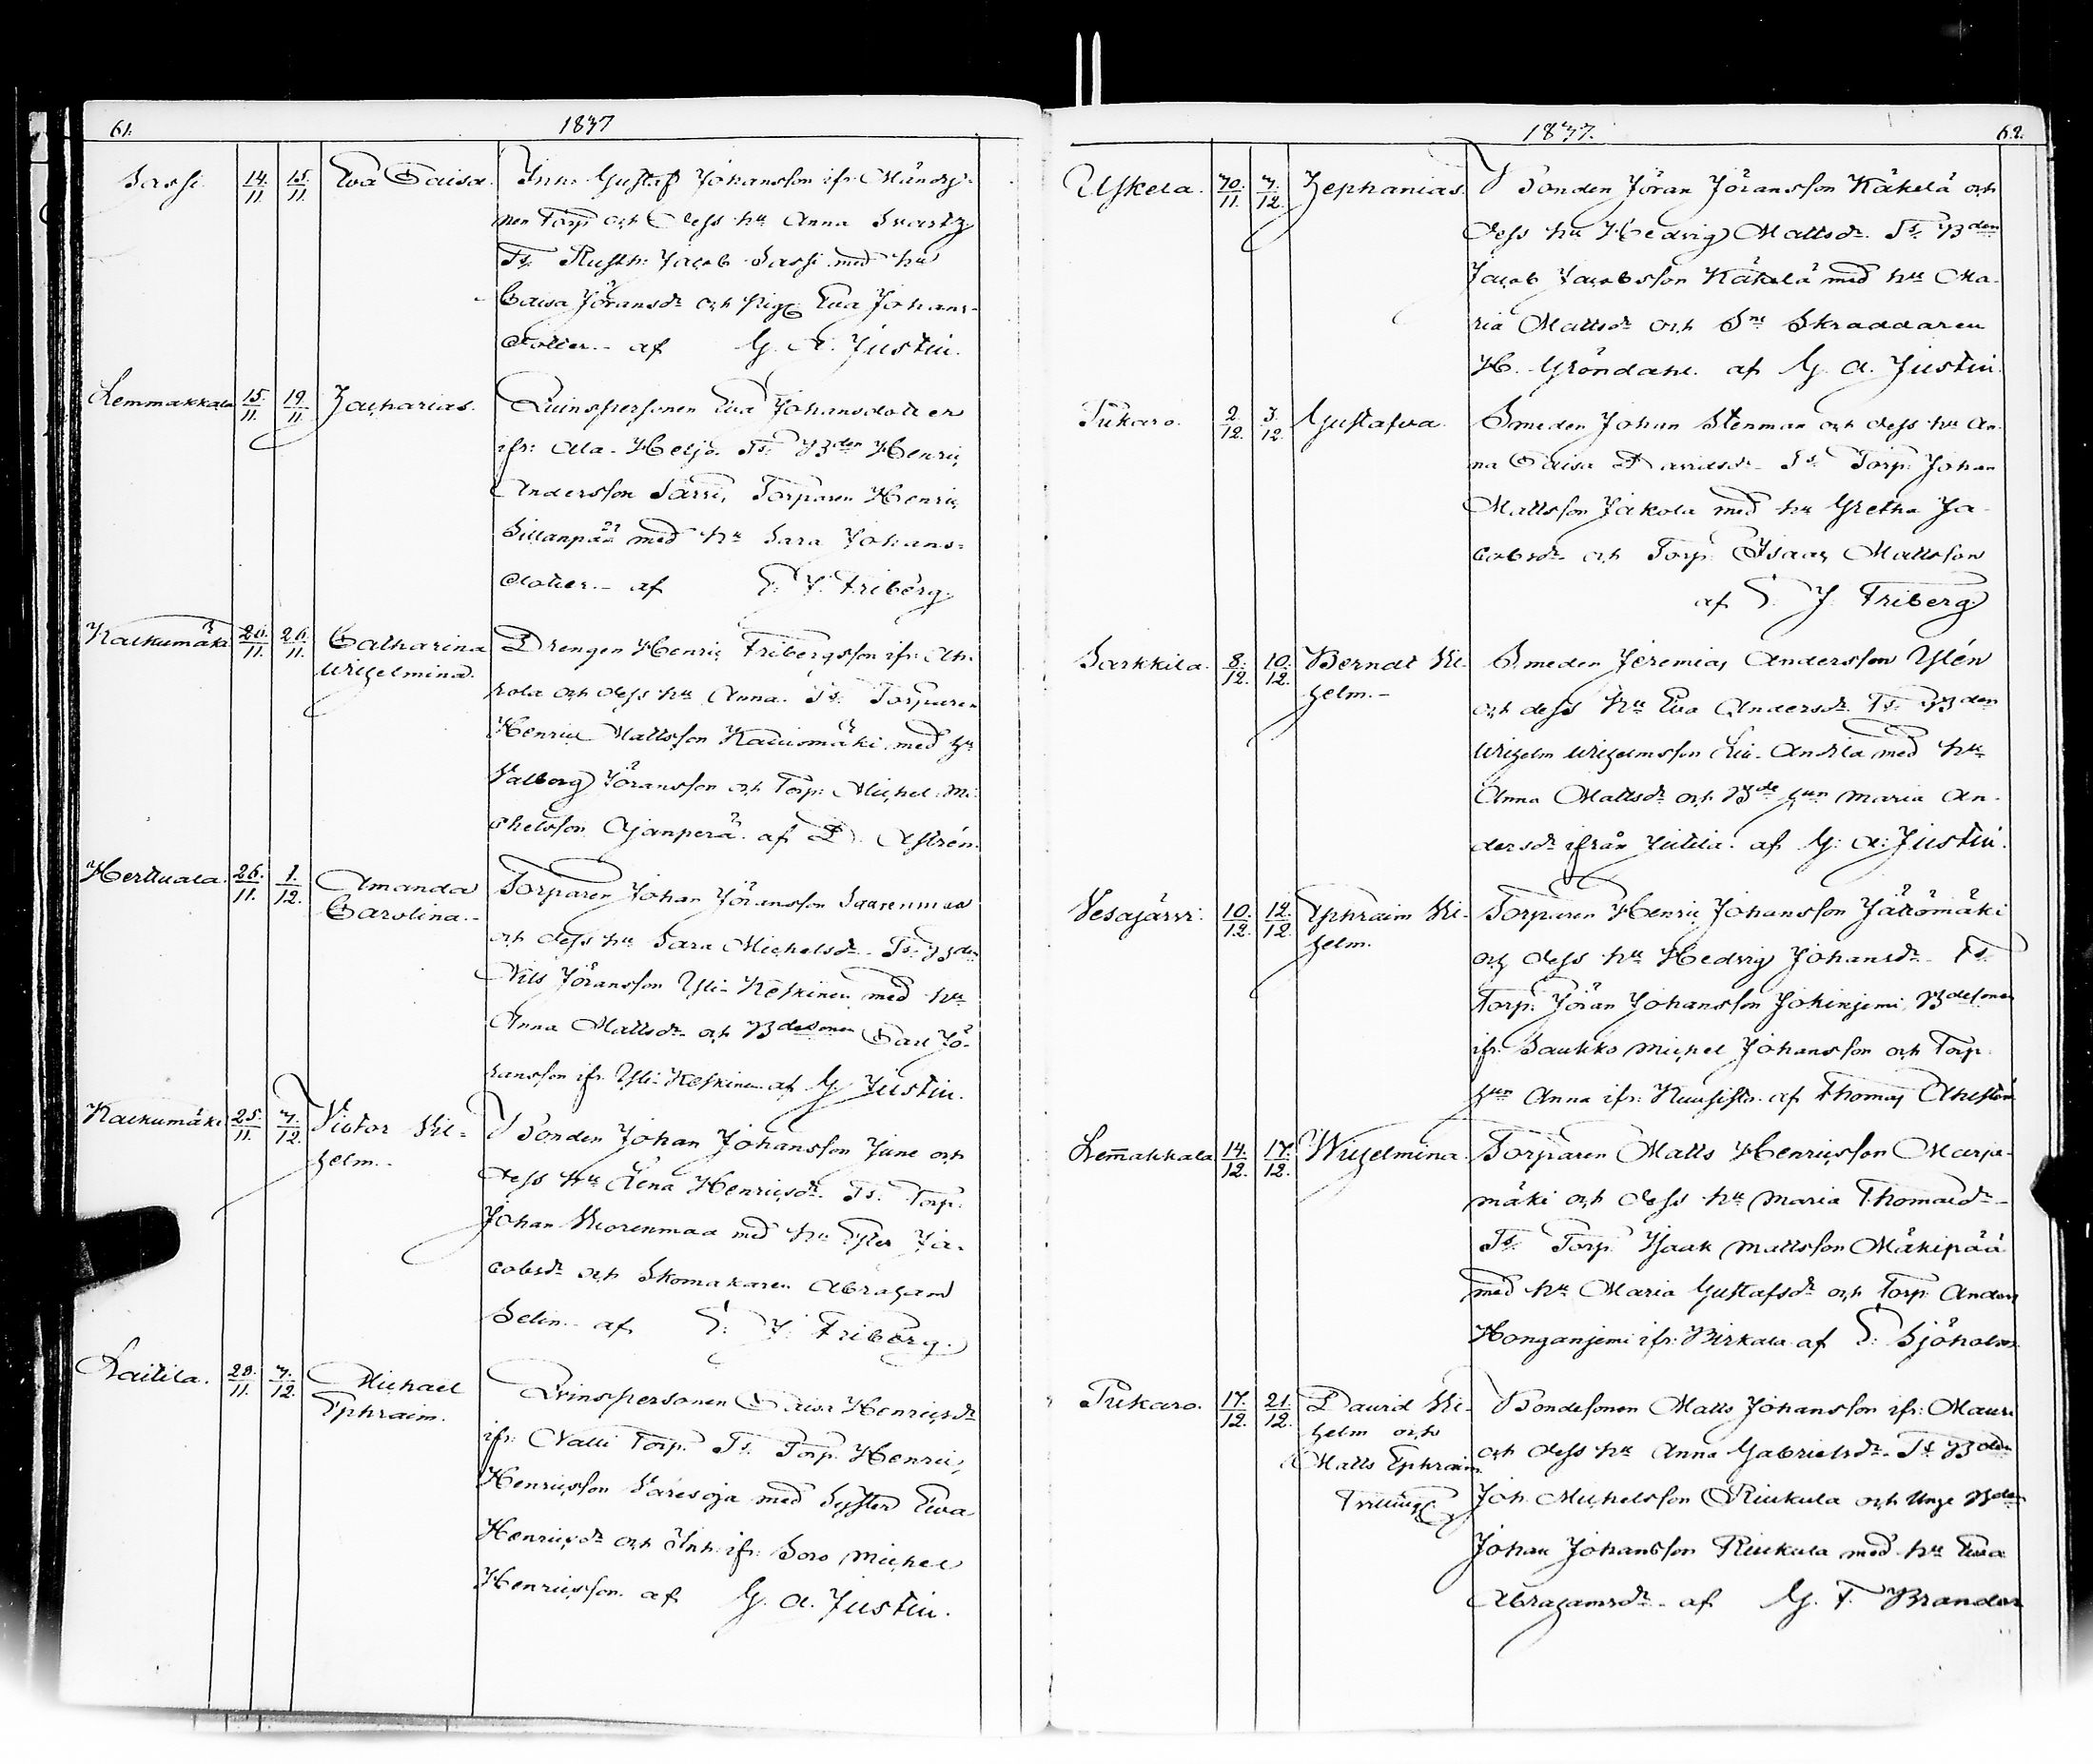 61.
1837
Sassi. 14/11. 15/11. Eva Caisa. Inh: Gustaf Johansson ifr:
nen Torp och dess hu Anna Svartz
Ts. Rusth: Jacob Sassi med hu
Caisa Jöransdr och pig: Eva Johans-
dotter.- af G. A. Justin.
Lemmakkala 15/11. 19/11. Zacharias. Qvinspersonen Eva Johansdotter
ifr: Ala-Heljo. Ts. Bden Henric
Andersson Sarri, Torparen Henric
Sillanpää med hu Sara Johans-
dotter.- af E. J. Friberg.
Kalkumäki 26/11. 26/11. Catharina Drengen Henric Fribergsson ifr: Ah-
Wilhelmina.
kola och dess hu Anna. Ts. Torparen
Henric Mattsson med hu
Valborg Jöransson och Torp: Michel Mi-
chelsson Ajanperä. af D. Aströn.
Herttuala. 26/11. 1/12. Amanda Torparen Johan Jöransson Saarenmaa
Carolina.-
och dess hu Sara Michelsdr- Ts: Bden
Nils Jöransson Yli-Keskinen med hu
Anna Mattsdr och Bdesonen Carl Jö-
ransson ifr: Yli-Keskinen af G. Justin.
Kalkumäki 25/11. 7/12. Victor Vil- Bonden Johan Johansson June och
helm.-
dess hu Lena Henricsdr. Ts. Torp:
Johan Vuorenmaa med hu Ester Ja-
cobsdr och Skomakaren Abraham
Selin- af E. J. Friberg.
Laitila. 28/11. 7/12. Michael Qvinspersonen Caisa Henricsdr
Ephraim.
ifr: Nalli Torp. Ts. Torp: Henric
Henricsson Säresoja med Syster Eva
Henricsdr och Inh: ifr: Soro Michel
Henricsson. af G. A. Justin.
1837.
62.
Uskela. 30/11. 7/12. Zephanias. Bonden Jöran Jöransson Käkelä och
dess hu Hedvig Mattsdr. Ts. Bden
Jacob Jacobsson Käkelä med hu Ma-
ria Mattsdr och Skräddaren
H. Gröndahl. af G. A. Justin.
Pukaro. 2/12. 3/12. Gustafva. Smeden Johan Stenman och dess hu An-
na Caisa Davidsdr- Ts. Torp: Johan
Mattsson Jakola med hu Gretha Ja-
cobsdr och Torp: Isaac Mattsson
af E. J. Friberg.
Sarkkila. 8/12. 10/12. Berndt Vil- Smeden Jeremias Andersson Ylén
helm.-
och dess hu Eva Andersdr. Ts. Bden
Wilhelm Wilhelmsson Liu-Andila med hu
Anna Mattsdr och Bde hun Maria An-
dersdr ifrån af G: A: Justin.
Vesajärvi. 10/12. 12/12. Ephraim Vil- Torparen Henric Johansson Jättömäki
helm.
och dess hu Hedvig Johansdr- Ts.
Torp: Jöran Johansson Jokinjemi, Bdesonen
ifr: Saukko Michel Johansson och Torp:
hun Anna ifr: Kuusisto. af Thomas
Lemakkala 14/12. 17/12. Wilhelmina. Torparen Matts Henricsson Marja-
mäki och dess hu Maria Thomasdr-
Ts. Torp. Isaak Mattsson Mäkipää
med hu Maria Gustafsdr och Torp: Anders
Honganjemi ifr: Birkala af E: Sjöholm
Pukaro. 17/12. 21/12. David Vil- Bondesonen Matts Johansson ifr: Mauri
helm och
och dess hu Anna Gabrielsdr- Ts. Bden
Matts Ephraim
Joh. Michelsson Riukula och Unge Bden
Tvilling
Johan Johansson Riukula med hu Eva
Abrahamsdr- af G. F. Brander